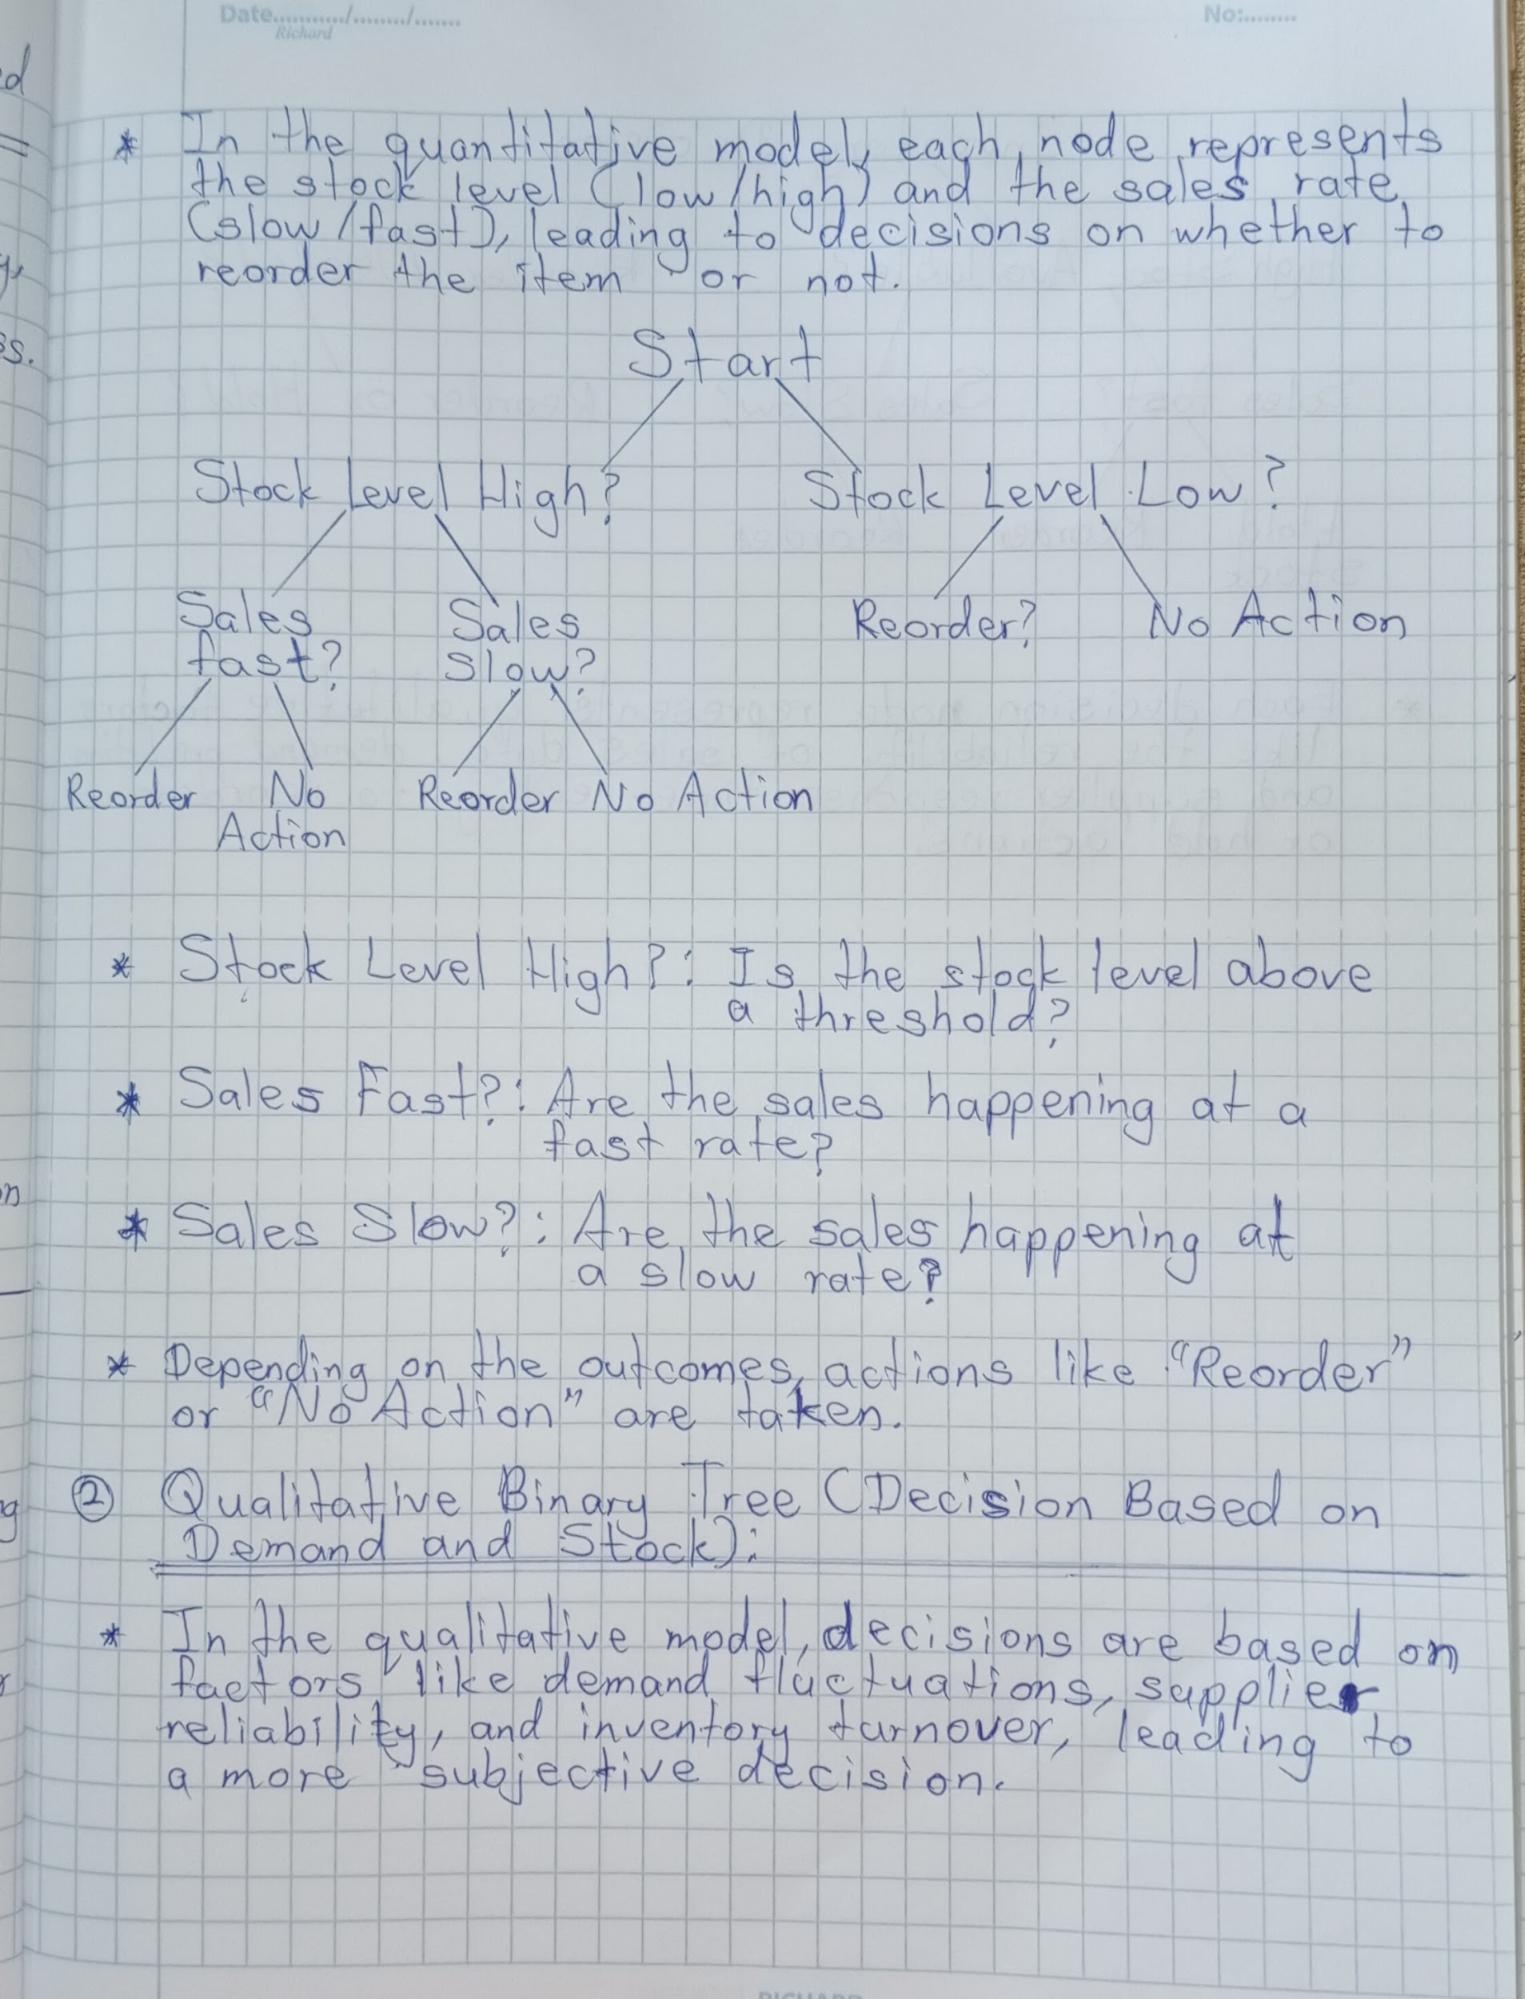 Date............/......../.......
Richard
No:........
* In the quantitative model, each node represents
the stock level (low/high) and the sales rate
(slow/fast), leading to decisions on whether to
reorder the item or not.
Start
Stock Level High? Stock Level Low?
Sales Sales Reorder? No Action
fast? Slow?
Reorder No Reorder No Action
Action
* Stock Level High?: Is the stock level above
a threshold?
* Sales Fast?: Are the sales happening at a
fast rate?
* Sales Slow?: Are the sales happening at
a slow rate?
* Depending on the outcomes, actions like "Reorder"
or "No Action" are taken.
② Qualitative Binary Tree (Decision Based on
Demand and Stock):
* In the qualitative model, decisions are based on
factors like demand fluctuations, supplier
reliability, and inventory turnover, leading to
a more subjective decision.